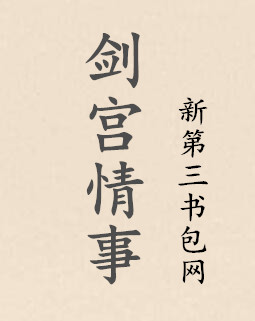 剑宫情事
新第三书包网